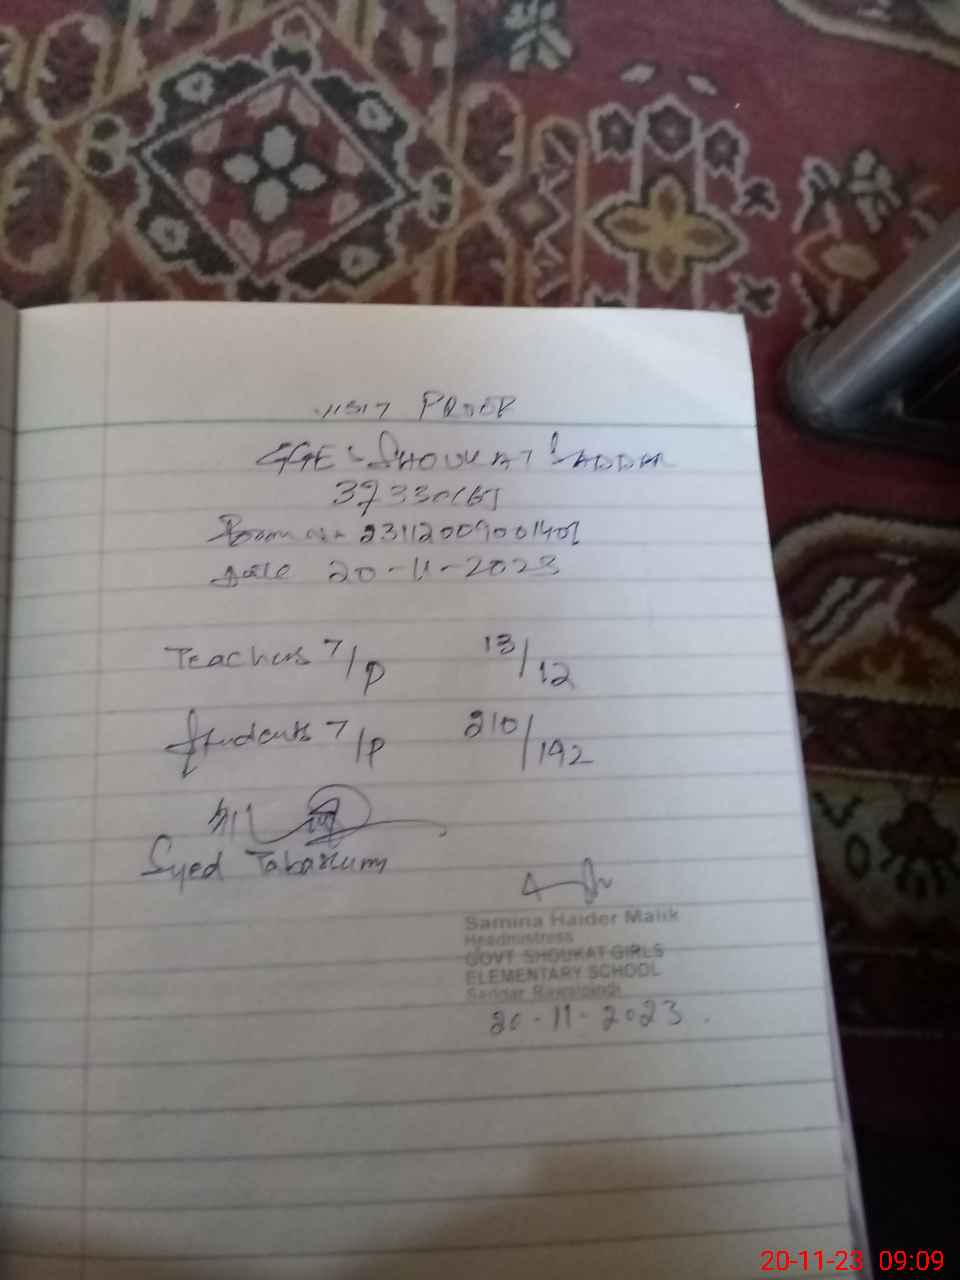 VISIT PROOF
GGES SHOUKAT SADDAR
37330165
Date 20-11-2023
Teachers T/P 13/12
Students T/P 210/192
Syed Tabassum
Samina Haider Malik
Headmistress
GOVT SHOUKAT GIRLS
ELEMENTARY SCHOOL
Saddar Rawalpindi
20-11-2023.
20-11-23 09:09